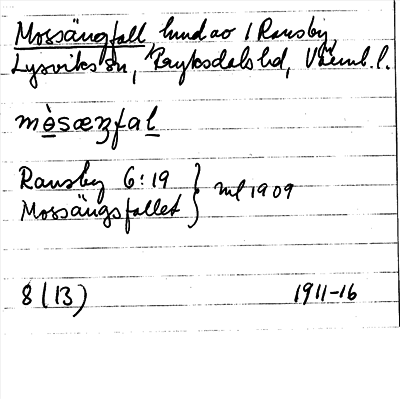 Mossängfall hmd av 1 Ransby,
Lysviks sn, Fryksdals hd, Värml. l.
mòsæŋfal
Ransby 6:19 } ml 1909
Mossängsfallet
8 (13) 1911-16